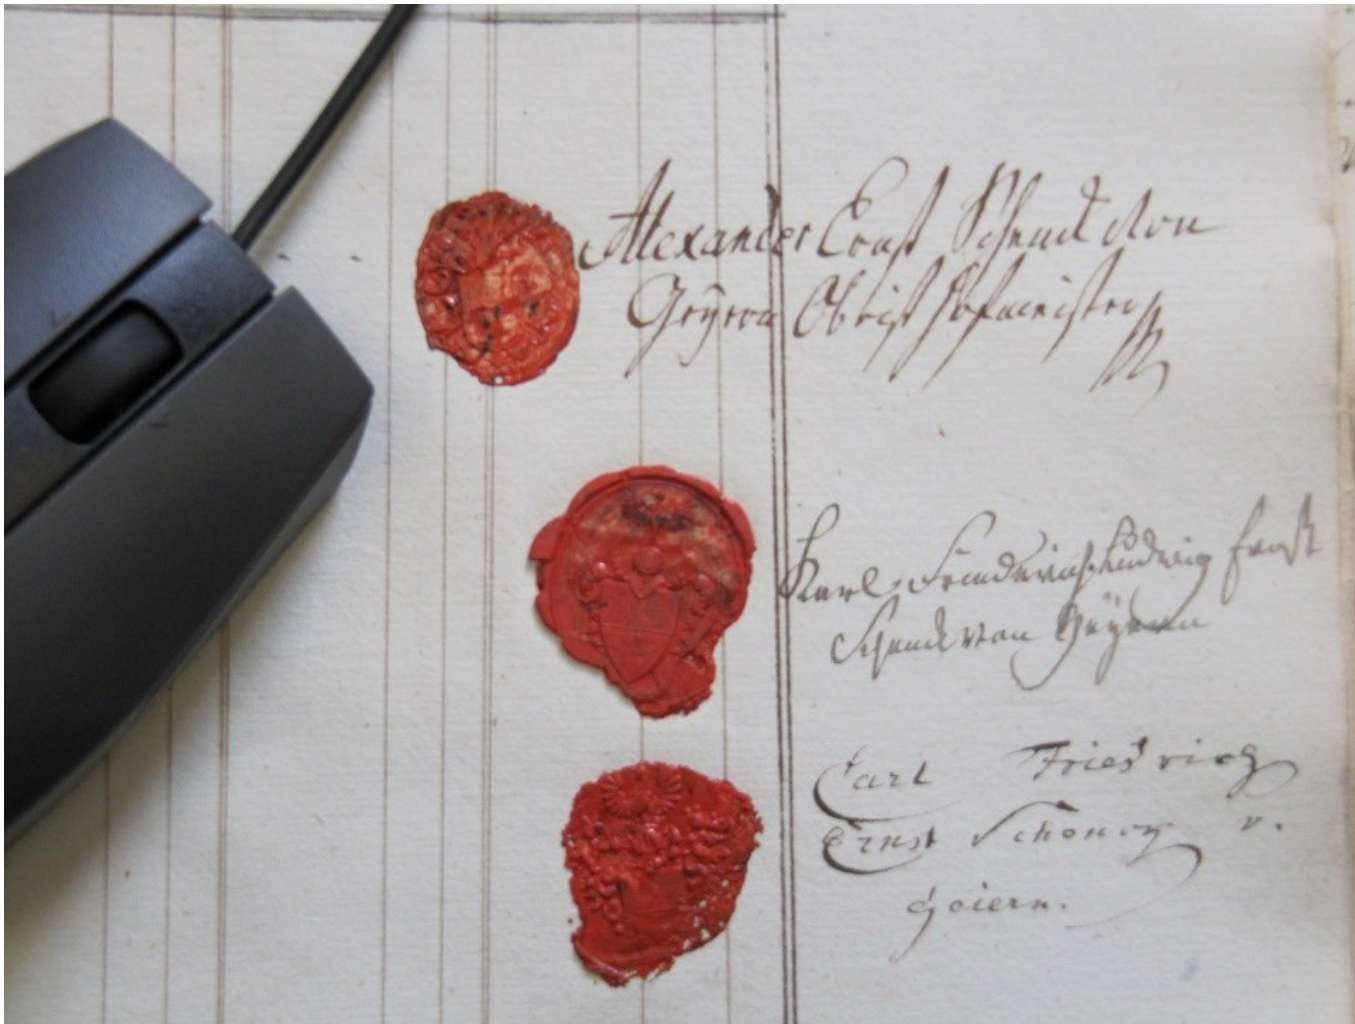 Alexander Ernst Schenck von
Geÿern Obrist Hofmeister
Karl Friederich Ludwig Ernst
Schenck von Geÿern
Carl Friedrich
Ernst Schenck v.
Geiern.